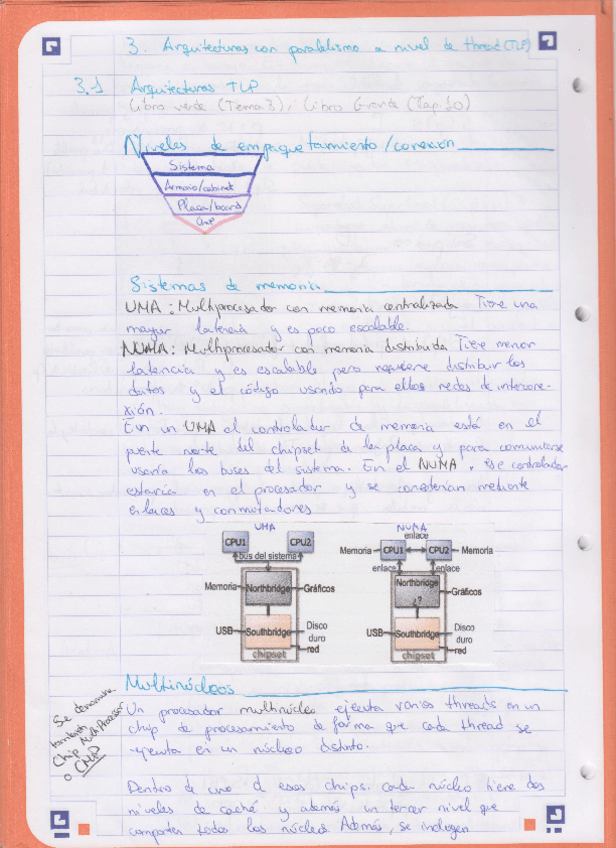 3. Arquitecturas con paralelismo a nivel de thread (TLP)
3.1 Arquitecturas TLP
Libro verde (Tema 3), Libro Grande (Cap. 10)
Niveles de empaquetamiento/conexión
Sistema
Armario/cabinet
Placa/board
Chip
Sistemas de memoria
UMA: Multiprocesador con memoria centralizada. Tiene una
mayor latencia y es poco escalable.
NUMA: Multiprocesador con memoria distribuida. Tiene menor
latencia y es escalable pero requiere distribuir los
datos y el código usando para ellos redes de interone-
xión.
En un UMA el controlador de memoria está en el
puente norte del chipset de la placa y para comunicarse
usaría los buses del sistema. En el NUMA, ese controlador
estaría en el procesador y se conectarían mediante
enlaces y conmutadores
UMA
CPU1 CPU2
bus del sistema
Memoria Northbridge Gráficos
USB Southbridge Disco duro
red
chipset
NUMA
enlace
Memoria CPU1 CPU2 Memoria
enlace enlace
Northbridge ¿? Gráficos
USB Southbridge Disco duro
red
chipset
Multinúcleos
Se denomina
también
Chip MultiProcesor
o CMP
Un procesador multinúcleo ejecuta varios threads en un
chip de procesamiento de forma que cada thread se
ejecuta en un núcleo distinto.
Dentro de uno d esos chips, cada núcleo tiene dos
niveles de caché y además un tercer nivel que
comparten todos los núcleos. Además, se incluyen